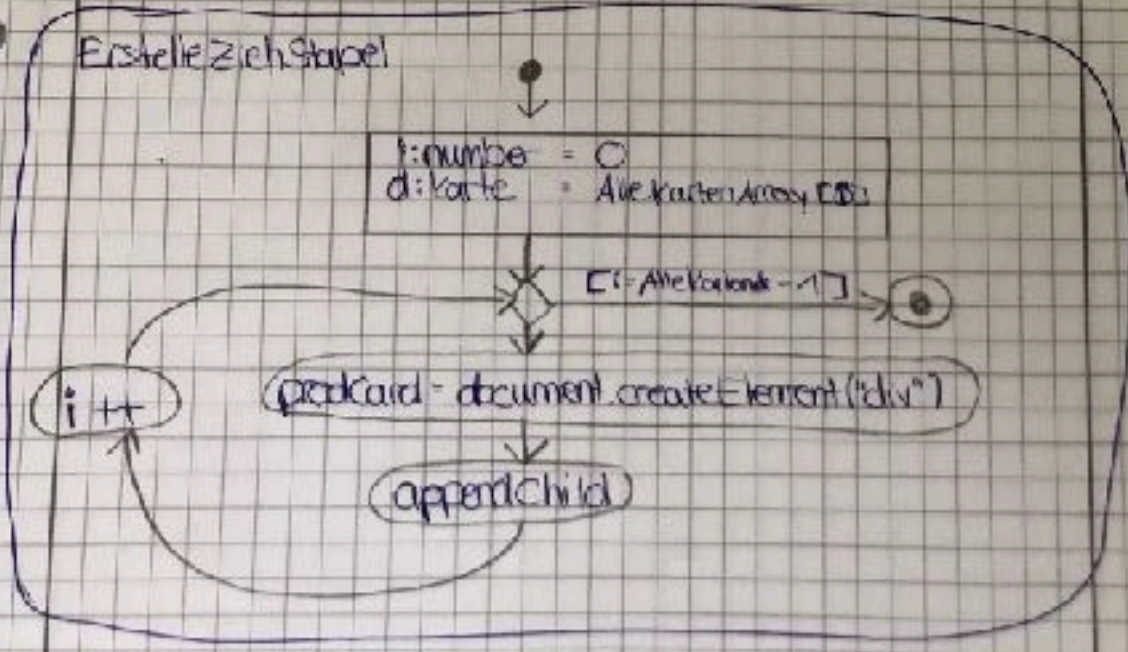 Erstelle Ziehstapel
i:number = 0
d:Karte = AlleKartenArray
i++
prodCard = document.createElement("div")
appendChild